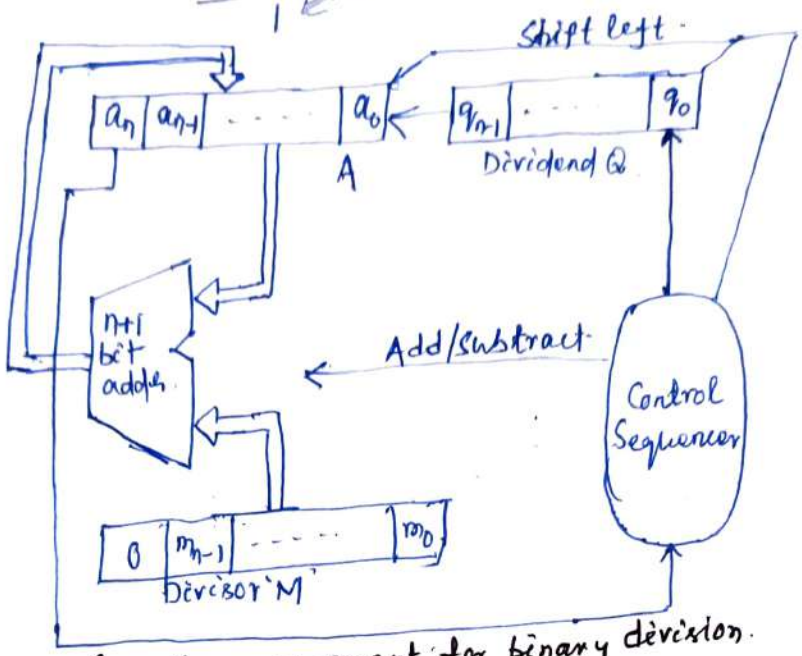 Shift left.
aₙ aₙ₋₁ ..... a₀
qₙ₋₁ ..... q₀
A
Dividend Q
n+1
bit
adder.
Add/subtract.
Control
Sequencer
0 mₙ₋₁ ..... m₀
Divisor 'M'
for binary division.